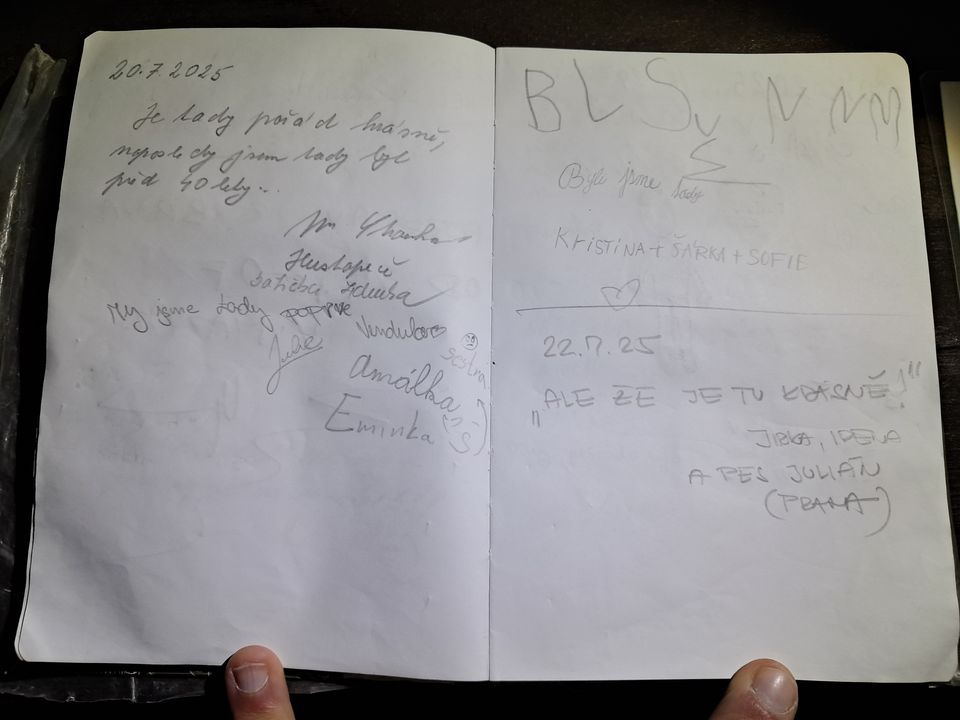 20.7.2025
Je tady pořád krásně,
naposledy jsem tady byl
před 40 lety...
Hustopeče
My jsme tady poprvé
sestra
Amálka
Eminka
BLS
Byli jsme tady
KRISTÍNA + ŠÁRKA + SOFIE
22.7.25
„ALE ŽE JE TU KRÁSNĚ!"
JIRKA,
A PES JULIÁN
(PRAHA)